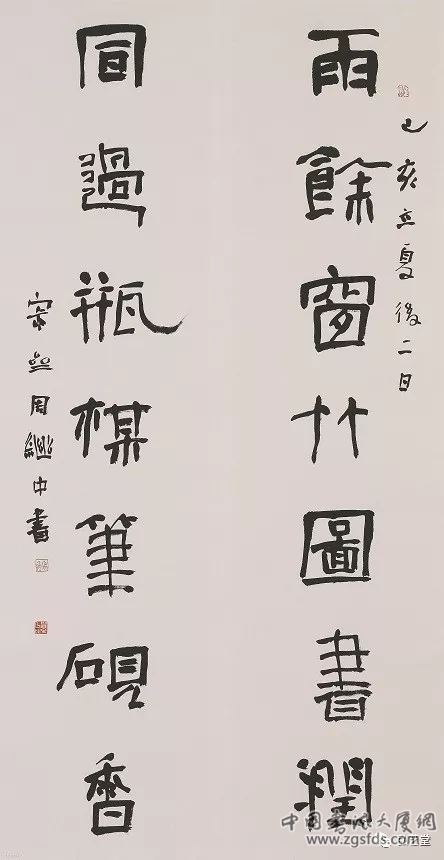 己亥立夏後二日
雨餘窗竹圖書潤
凬過瓶楳筆硯香
周繼中書
中国书法大厦网
www.zgsfds.com